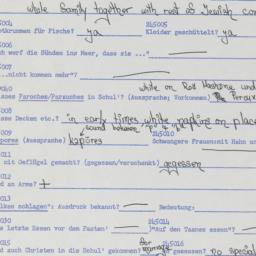 while family together with rest of Jewish con
5004 245005
etkrumen für Fische? ya Kleider geschüttelt? ya
5006
ch werf die Sündns ins Meer, dass sie ..."
5007
...nicht kommen mehr"?
white on Rosh Hashone und
asses Paroches/Parauches in Schul'? (Aussprache; Vorkommen)
5008
sse Decken etc.? in early times white napkins on place
5009 sound between 245010
pores (Aussprache) kapōres Schwangere Frauen: mit Hahn un
5011
it Geflügel gemacht? (gegessen/verschenkt) gegessen
5012
d an Arme? +
5013
lken schlagen": Ausdruck bekannt? Bedeutung:
5030 245014
s letzte Essen vor dem Fasten' "Auf den Taanes essen"?
5015 245016
nd auch Christen in die Schul' gekommen? gegessen? no special